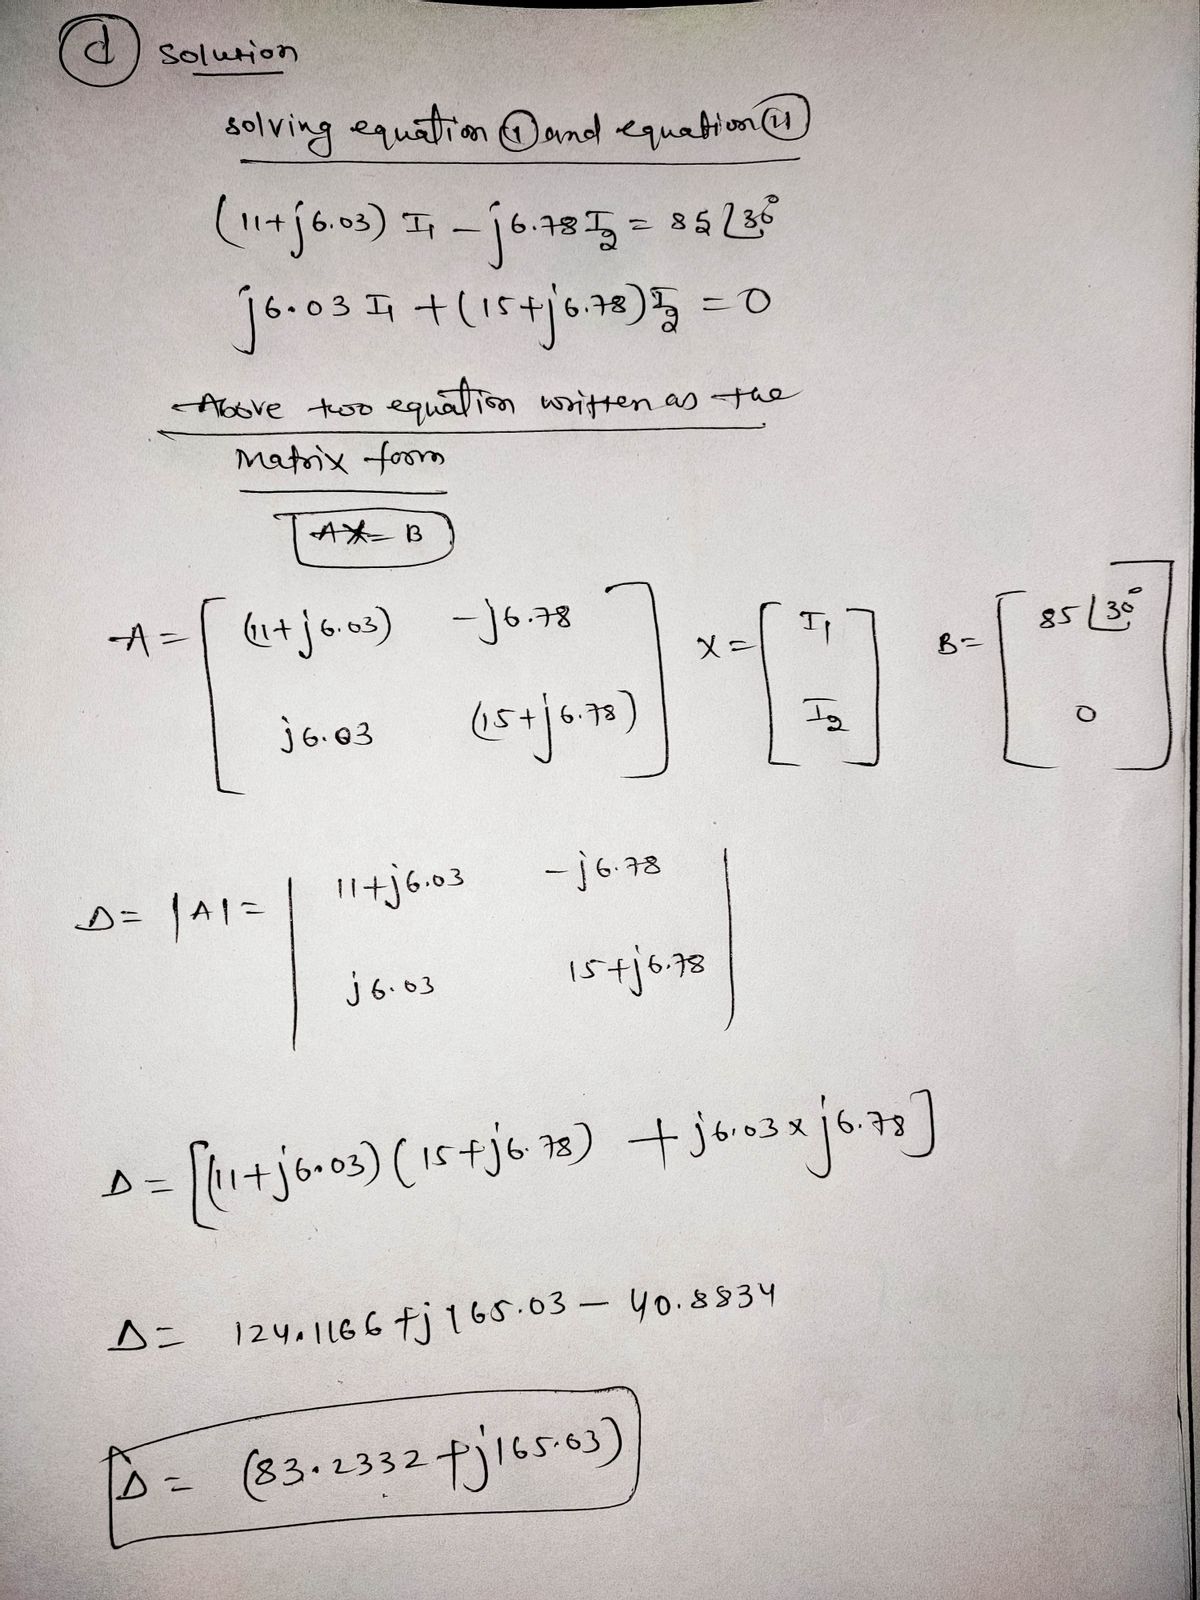 d solution
solving equation ① and equation ⑪
(11+j6.03) I1 - j6.78 I2 = 85∠30°
j6.03 I1 + (15+j6.78) I2 = 0
Above two equation written as the
Matrix form
AX = B
A = [ (11+j6.03) -j6.78 X = [ I1 ] B = [ 85∠30° ]
j6.03 (15+j6.78) ] I2 0
Δ = |A| = | 11+j6.03 -j6.78 |
j6.03 15+j6.78
Δ = [(11+j6.03) (15+j6.78) + j6.03 x j6.78]
Δ = 124.1166 + j165.03 - 40.8834
Δ = (83.2332 + j165.03)